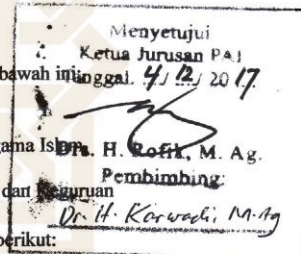 Menyetujui
Ketua Jurusan PAI
bawah ini:
Tanggal. 4 / 12 / 20 17.
gama Islam
Drs. H. Rofik, M. Ag.
Pembimbing:
dan Keguruan
Dr. H. Karwadi, M.Ag
berikut: